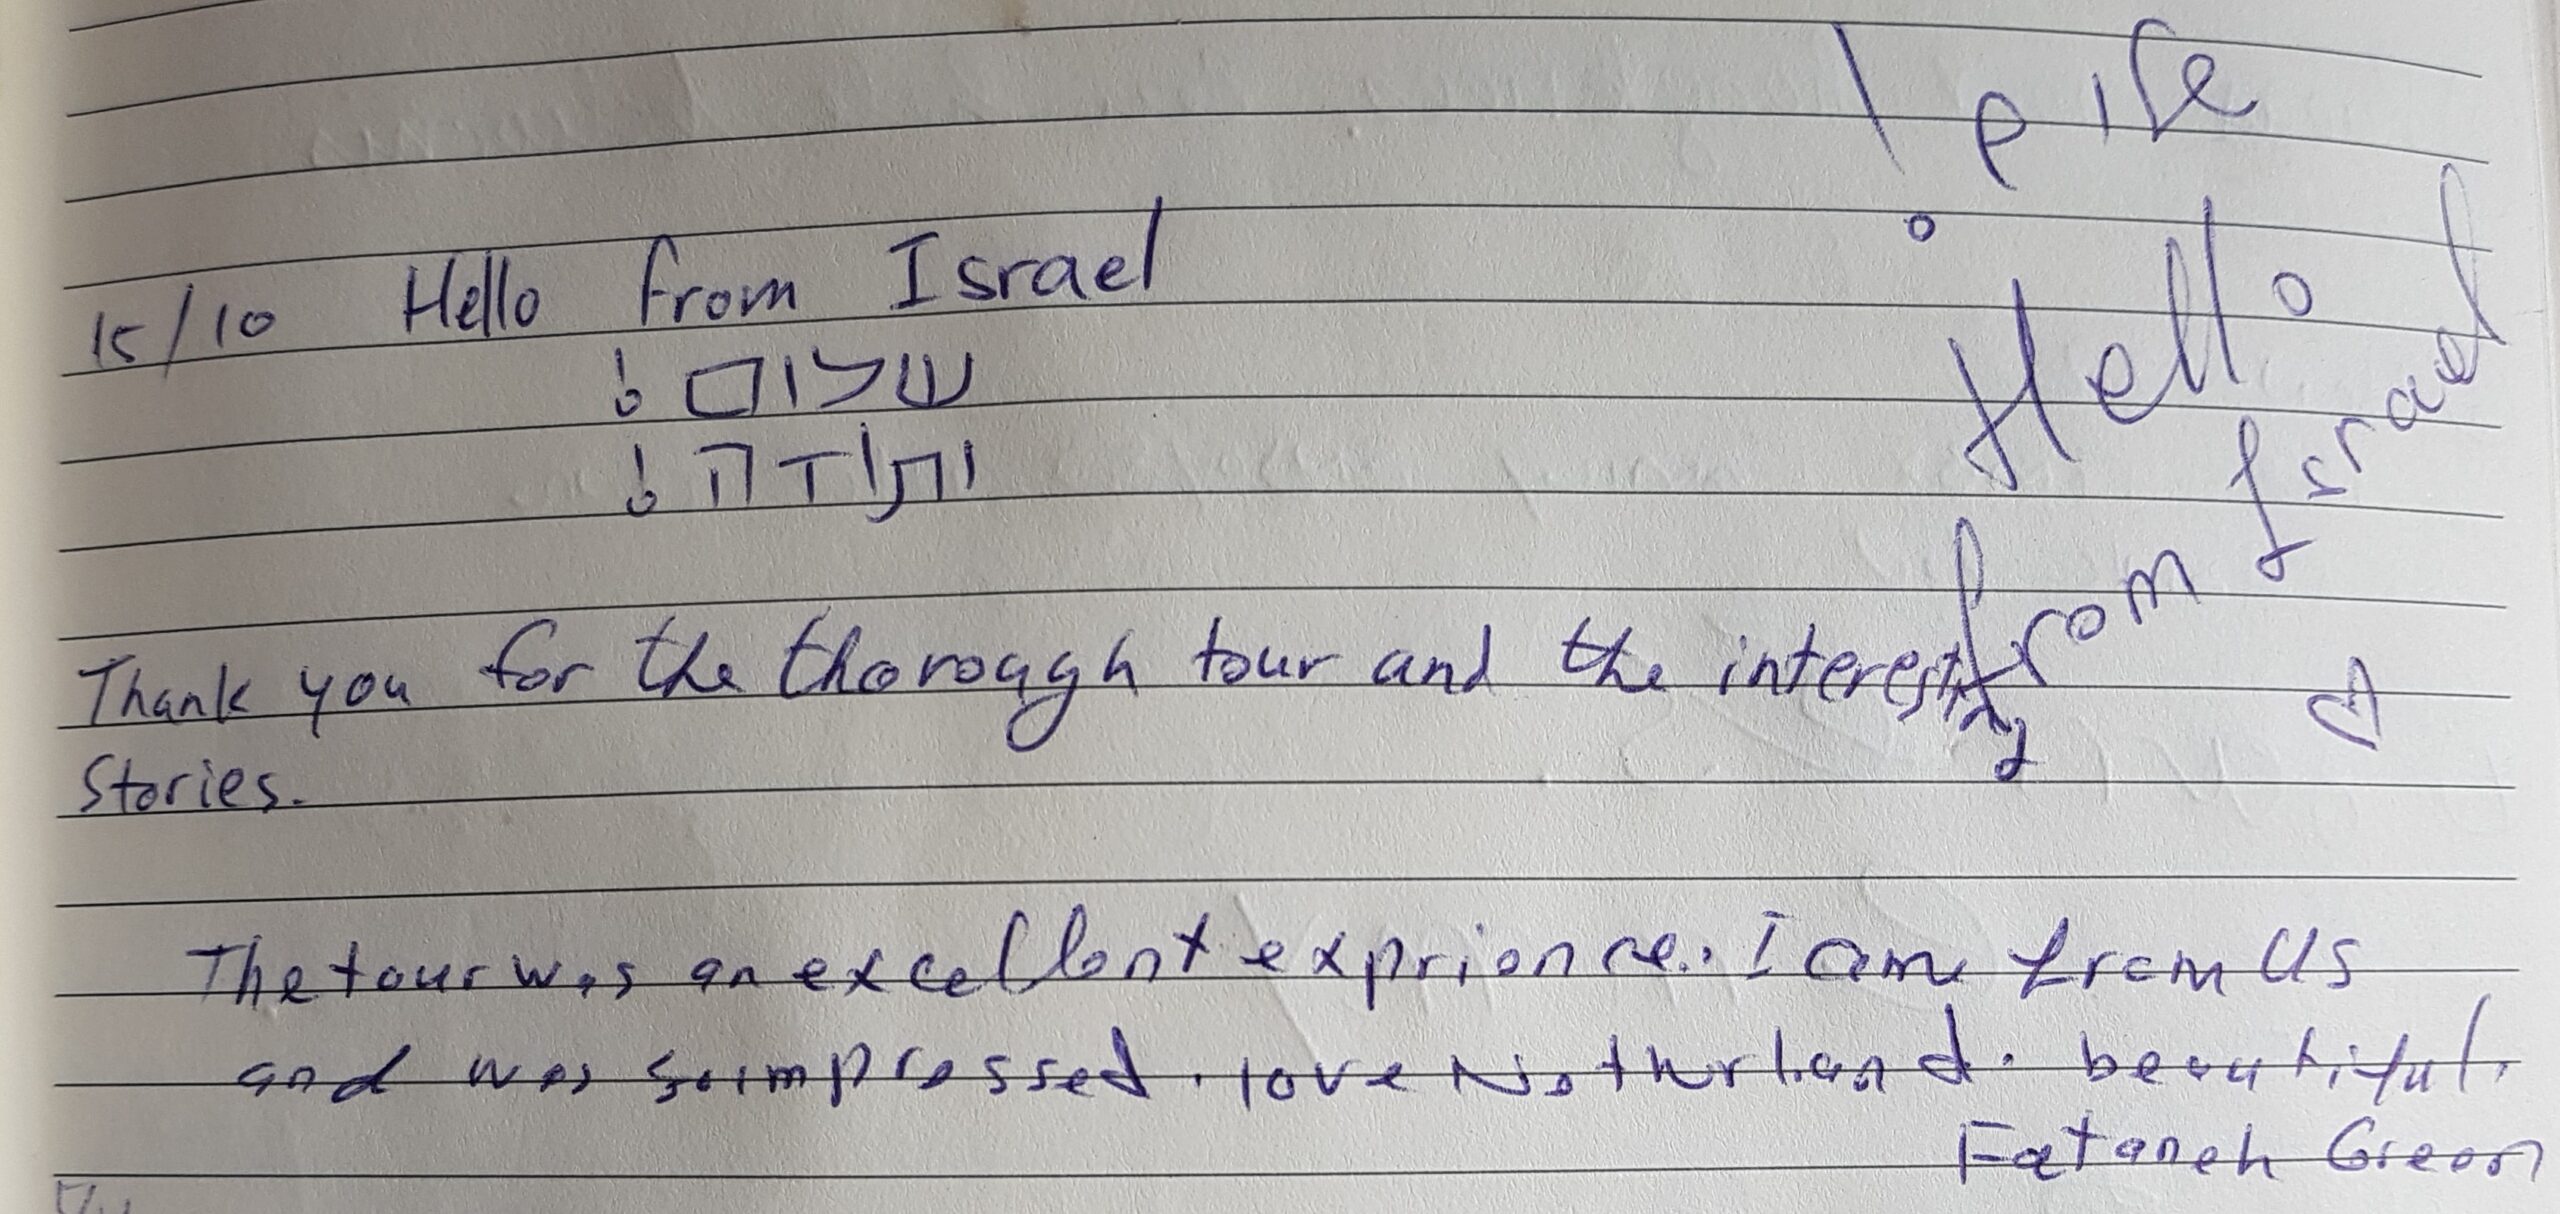 שלום!
Hello
from Israel
15/10 Hello from Israel
שלום!
ותודה!
Thank you for the thorough tour and the interesting
Stories.
The tour was an excellent exprience. I am from US
and was so impressed. love Netherland. beautiful.
Fataneh Green